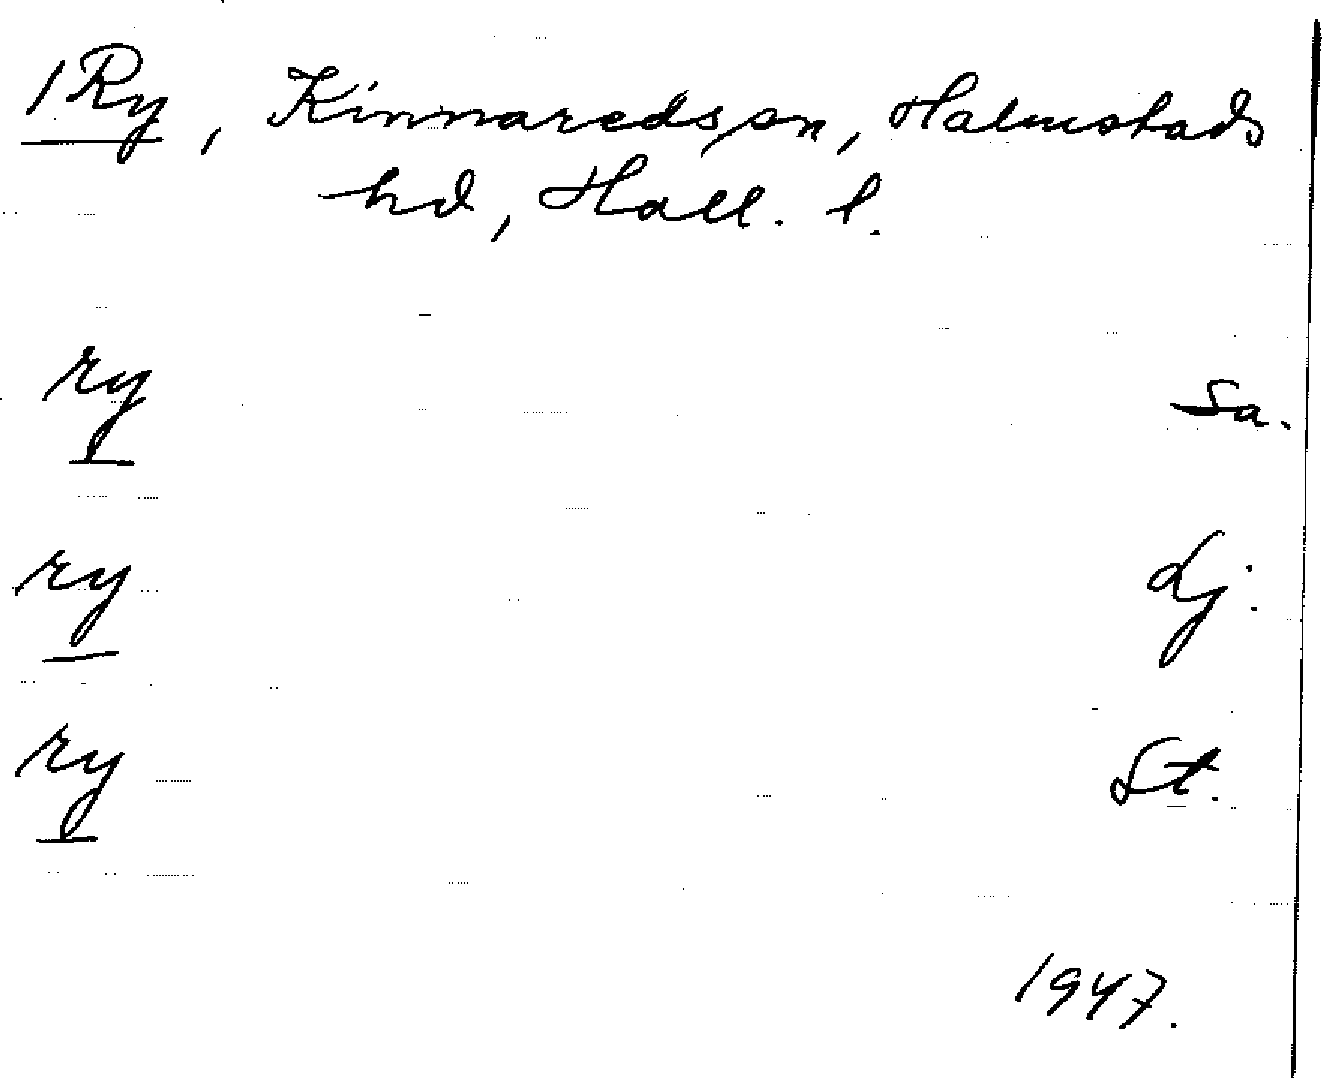 1 Ry, Kinnareds sn, Halmstads
hd, Hall. l.
ry Sa.
ry Lj.
ry St.
1947.